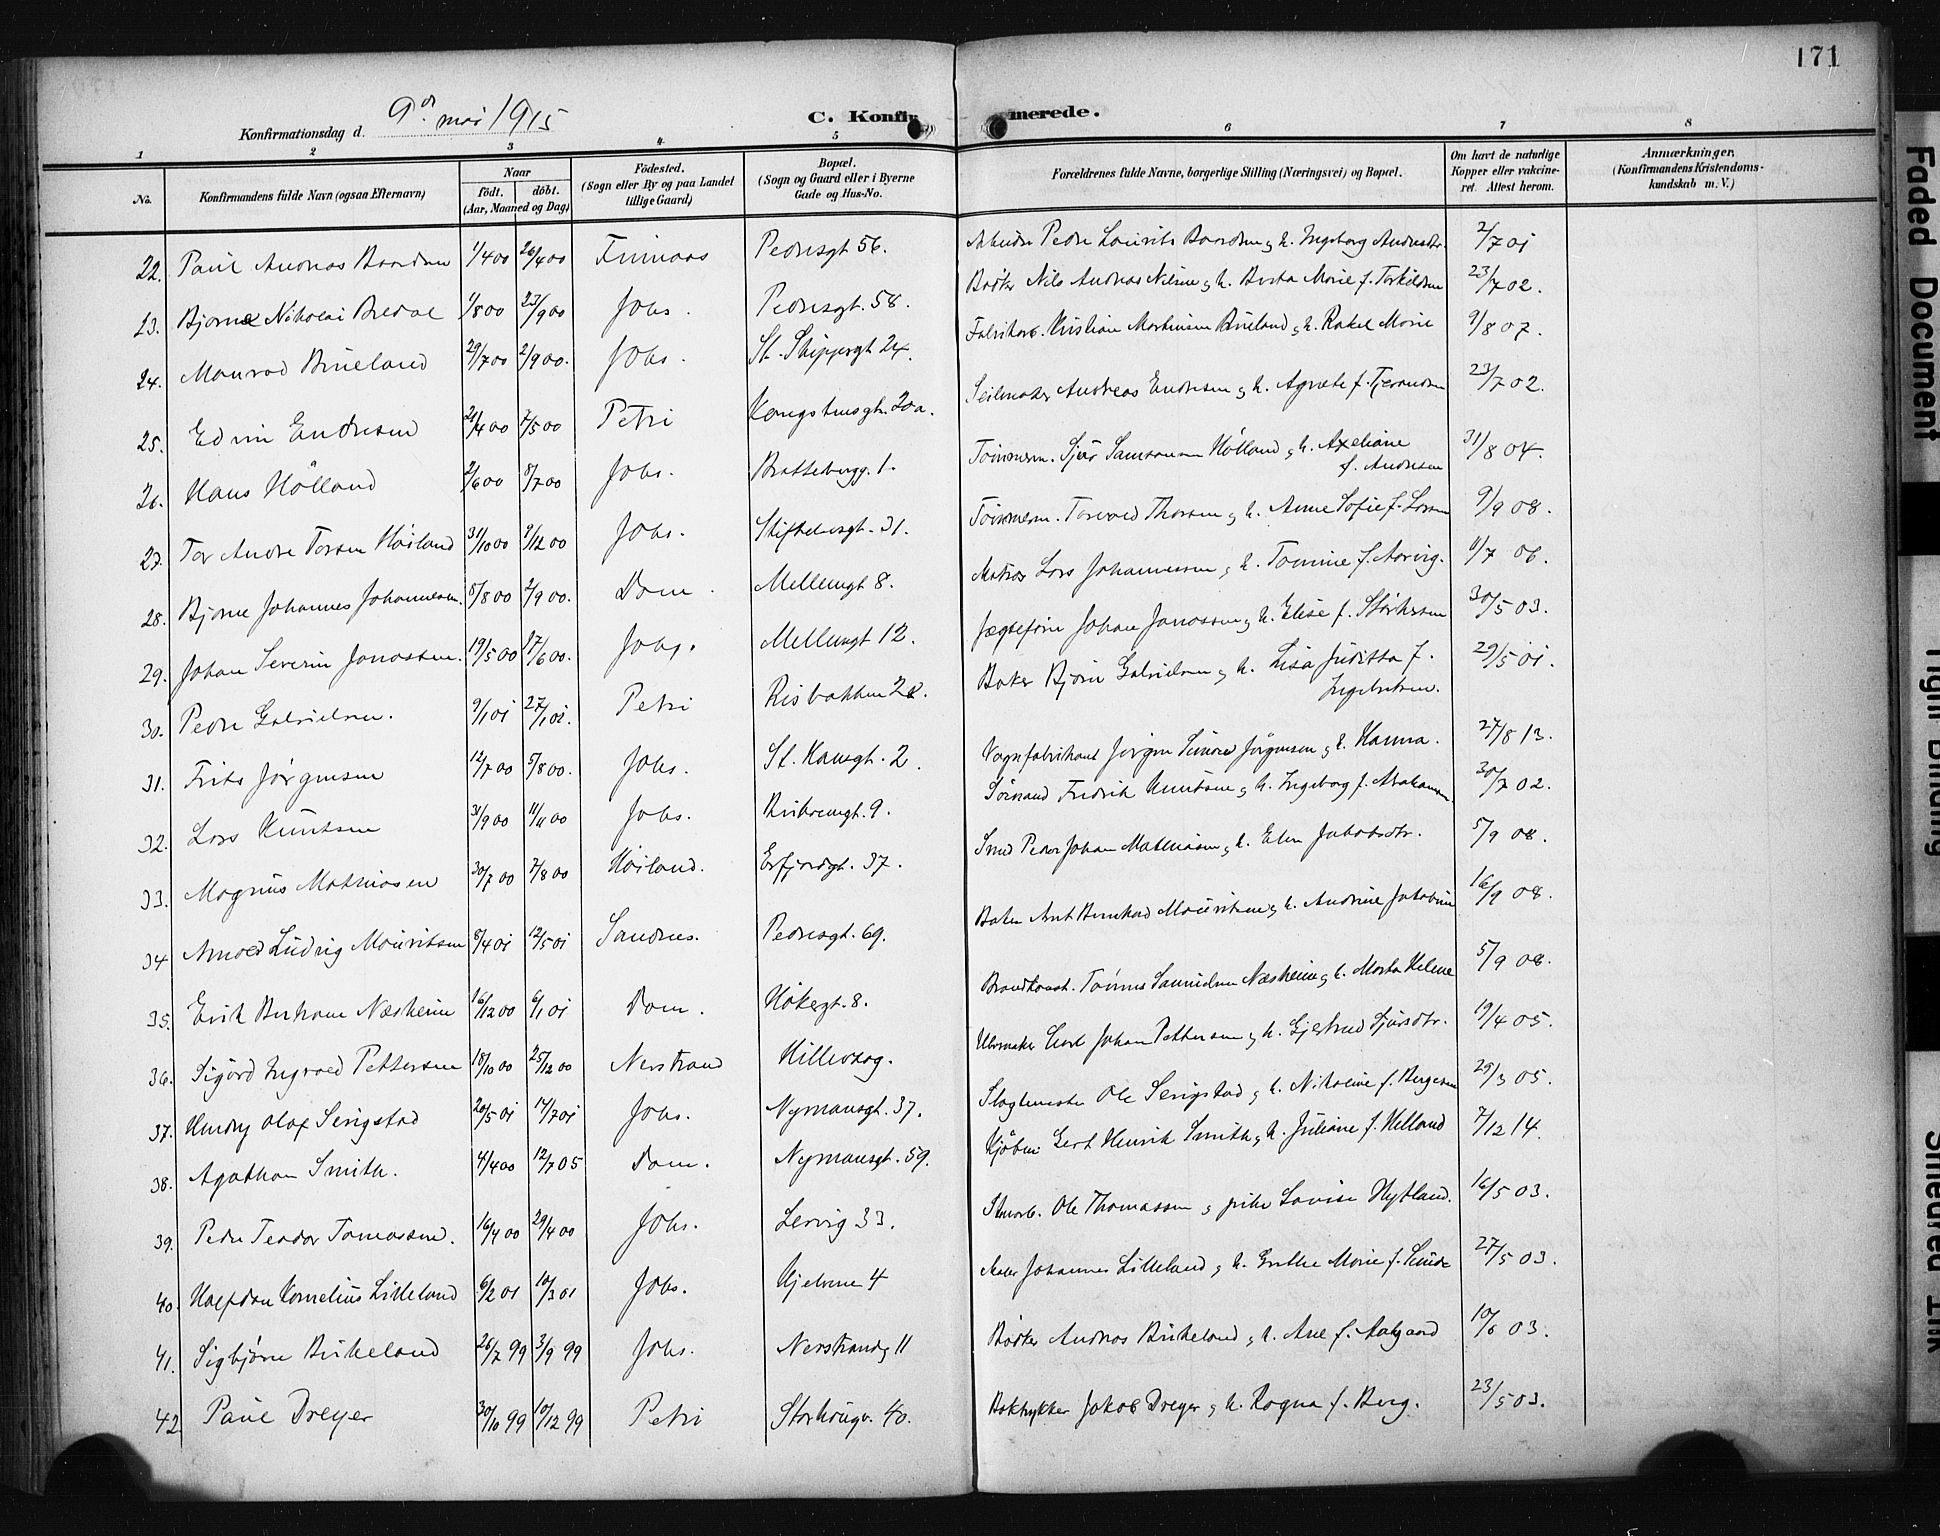 171
Konfirmationsdag d. 9de mai 1915
C. Konfirmerede.
1 2 3 4 5 6 7 8
No.
Konfirmandens fulde Navn (ogsaa Efternavn)
Naar
födt. döbt.
(Aar, Maaned og Dag)
Födested.
(Sogn eller By og paa Landet
tillige Gaard)
Bopæl.
(Sogn og Gaard eller i Byerne
Gade og Hus-No.
Forældrenes fulde Navne, borgerlige Stilling (Næringsvei) og Bopæl.
Om havt de naturlige
Kopper eller vakcine-
ret. Attest herom.
Anmærkninger.
(Konfirmandens Kristendoms-
kundskab m. V.)
22. Paul Andreas 1/4 00 26/4 00 Pedersgt 56. Peder Laurits h. Ingeborg Andersdtr. 2/7 01
23. Bjarne Nikolai Bredal 1/8 00 23/9 00 Johs. Pedersgt. 58. Bødker Nils Andreas Nilsen g h. Berta Marie f. Torkildsen 23/7 02.
24. Monrad Brueland 29/7 00 2/9 00. Johs. St. Skippergt 24. Fabrikarb. Kristian Martinsen Brueland g h. Rakel Marie 9/8 07.
25. Edvin Endresen 21/4 00 7/5 00 Petri Kongshusgt. 20a. Seilmaker Andreas Endresen g h. Agnete f. Tjerandsen 23/7 02.
26. Hans Hölland 2/6 00 8/7 00 Johs. Brattebergg. 1. Tömmerm. Sjur Samsonsen Hölland g h. Axeliane
f. Andresen 31/8 04.
27. Tor Andre Torsen Höiland 31/10 00 9/12 00 Johs. Stiftelsesgt. 31. Tömmerm. Torvald Thorsen g h. Anne Sofie f. Larsen 9/9 08.
28. Bjarne Johannes Johannesen. 5/8 00 2/9 00. Dom. Mellemgt 8. Matros Lars Johannessen g h. Tomine f. Aarvig. 11/7 06.
29. Johan Severin Jonassen. 19/5 00 17/6 00. Johs. Mellemgt 12. Jægtefører Johan Jonassen g h. Elise f. Störkersen 30/5 03.
30. Peder Gabrielsen. 9/1 01 27/1 01. Petri Risbakken 22. Baker Björn Gabrielsen g h. Lisa Juditta f.
Ingebretsen. 29/5 01.
31. Frits Jörgensen 12/7 00 5/8 00. Johs. St. Hansgt. 2. Vognfabrikant Jörgen Simon Jörgensen g h. Hanna. 27/8 13.
32. Lars Knutsen 3/9 00 11/11 00 Johs. 9. Sömand Fredrik Knutsen g h. Ingeborg f. Abrahamsen 30/7 02.
33. Magnus Mathiasen 30/7 00 7/8 00 Höiland. Erfjordgt. 37. Smed Peder Johan Mathiasen g h. Elen Jakobsdtr. 5/9 08.
34 Arnold Ludvig Mauritsen 8/4 01 12/5 01 Sandnes. Pedersgt. 69. Baker Arnt Bernhard Mauritsen g h. Andrine Jakobine 16/9 08.
35. Erik Nesheim 16/12 00 6/1 01 Dom. Høkergt. 8. Brandkonst. Tönnes Samuelsen Næsheim g h. Marta Helene 5/9 08.
36. Sigurd Ingvald Pettersen 18/10 00 25/12 00 Nerstrand Hillevaag. Uhrmaker Carl Johan Pettersen g h. Gjertrud Sjursdtr. 19/4 05.
37. Henry Olaf Serigstad 20/5 01 14/7 01 Johs. Nymansgt. 37. Slagtmester Ole Serigstad g h. Nikoline f. Bergesen 29/3 05.
38. Agathon Smith. 4/4 00 12/7 05 Dom. Nymansgt. 59. Kjöbm. Gert Henrik Smith g h. Juliane f. Helland 7/12 14.
39. Peder Teodor Tomassen. 16/4 00 29/4 00 Johs. Lervig 33. Ole Thomassen g pike Lovise Hytland. 16/5 03.
40. Halfdan Kornelius Lilleland 6/2 01 10/3 01 Johs. Hjelmen 4 Maler Johannes Lilleland g h. Grethe Marie f. Sunde 27/5 03.
41. Sigbjörn Birkeland 26/7 99 3/9 99 Johs. Nerstrandg 11 Bødker Andreas Birkeland g h. Ane f. Aalgaard 10/6 03.
42 Paul Dreyer 30/10 99 10/12 99 Petri Storhaugv. 40. Boktrykker Jakob Dreyer g h. Ragna f. Berg. 23/5 03.
Faded Document
Tight Binding
Smeared Ink